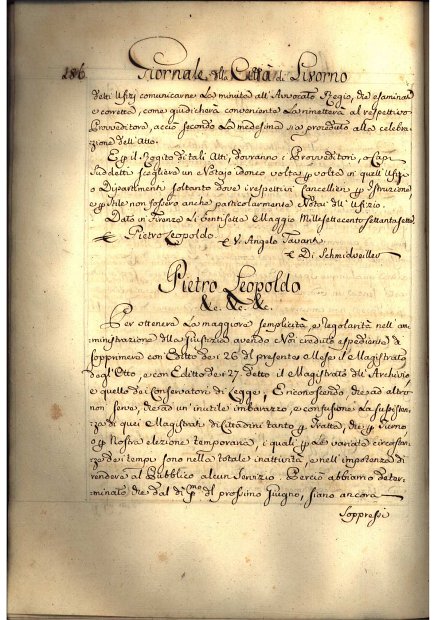 186. Giornale della Città di Livorno
detti Ufizj comunicarne la minuta all'Avvocato Regio, che esaminata
e corretta, come giudicherà conveniente la rimetterà al respettivo
Provveditore, acciò secondo la medesima sia proceduto alla celebra-
zione dell'Atto.
E per il Rogito di tali Atti, dovranno i Provveditori, o Capi
Suddetti scegliere un Notajo volta per volta in quell'Ufizio
o Dipartimenti soltanto dove i respettivi Cancellieri per Istruzione,
e per Stile non fossero anche particolarmente Notai dell'Ufizio.
Dato in Firenze Li Ventisette Maggio Millesettecento settantasette
Pietro Leopoldo
V. Angelo Tavanti
Di Schmidveiller
Pietro Leopoldo
&c. &c. &c.
Per ottenere La maggiore semplicità, e regolarità nell'am-
ministrazione della Giustizia avendo Noi creduto espediente di
sopprimere con Editto de i 26 del presente Mese il Magistrato
degl'Otto, e con Editto de i 27. detto il Magistrato dell'Archivio,
e quello de i Conservatori di Legge, E riconoscendo che ad altro
non serve, che ad un'inutile imbarazzo, e confusione La sussisten-
za di quei Magistrati di Cittadini tanto per Tratta, che per Turno
o per Nostra elezione temporaria, i quali per Le variate circostan-
ze de i tempi sono nella totale inattività, e nell'impotenza di
rendere al Pubblico alcun Servizio. Perciò abbiamo deter-
minato che dal dì p.mo del prossimo Giugno, siano ancora
Soppressi